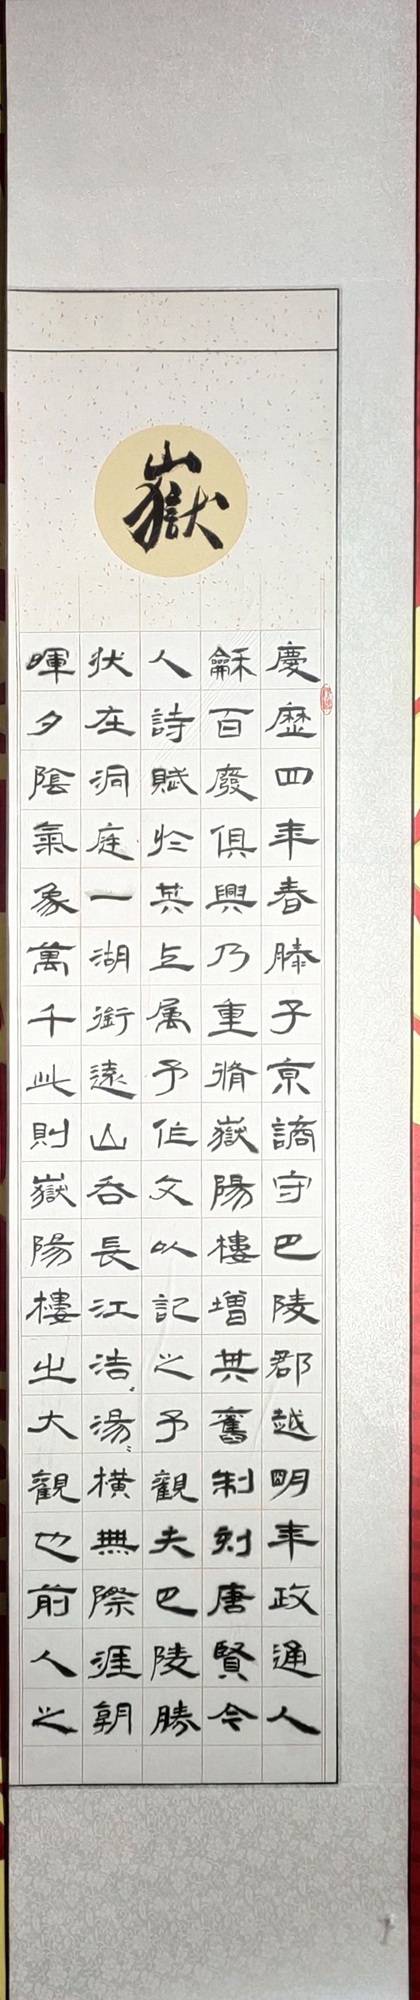 嶽
慶歷四年春滕子京謫守巴陵郡越明年政通人
龢百廢俱興乃重脩嶽陽樓增其舊制刻唐賢今
人詩賦於其上属予作文以記之予觀夫巴陵勝
狀在洞庭一湖銜遠山吞長江浩〻湯〻橫無際涯朝
暉夕陰氣象萬千此則嶽陽樓之大觀也前人之